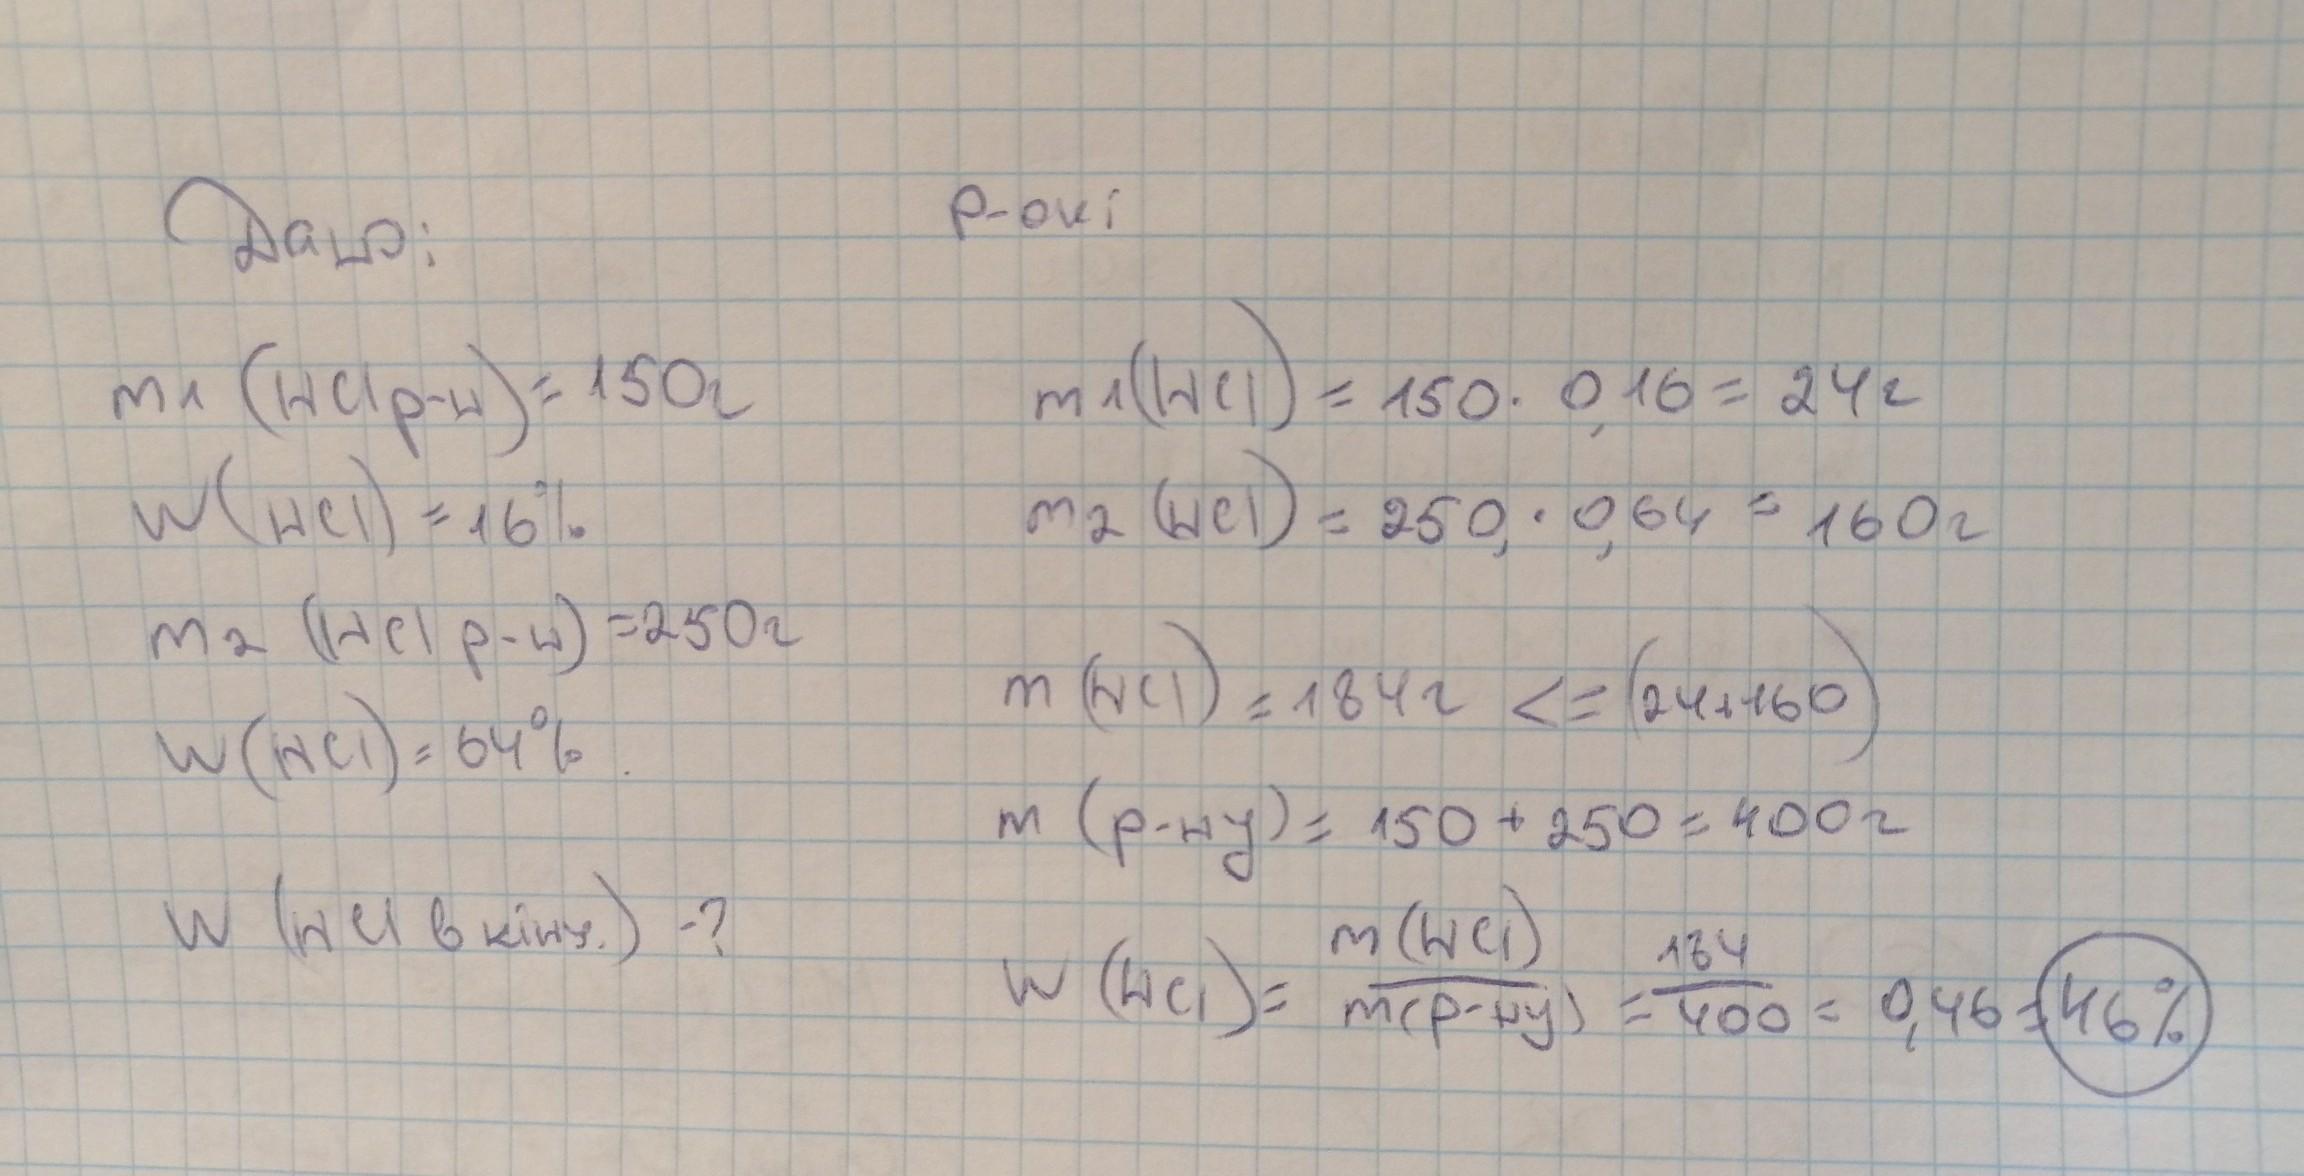 Дано:
m1 (HCl р-н) = 150г
W(HCl) = 16%
m2 (HCl р-н) = 250г
W(HCl) = 64%.
W (HCl в кінц.) -?
р-окі
m1(HCl) = 150 · 0,16 = 24г
m2 (HCl) = 250, · 0,64 = 160г
m (HCl) = 184г <= (24+160)
m (р-ну) = 150 + 250 = 400г
W (HCl) = m (HCl) / m(р-ну) = 184 / 400 = 0,46 = 46%